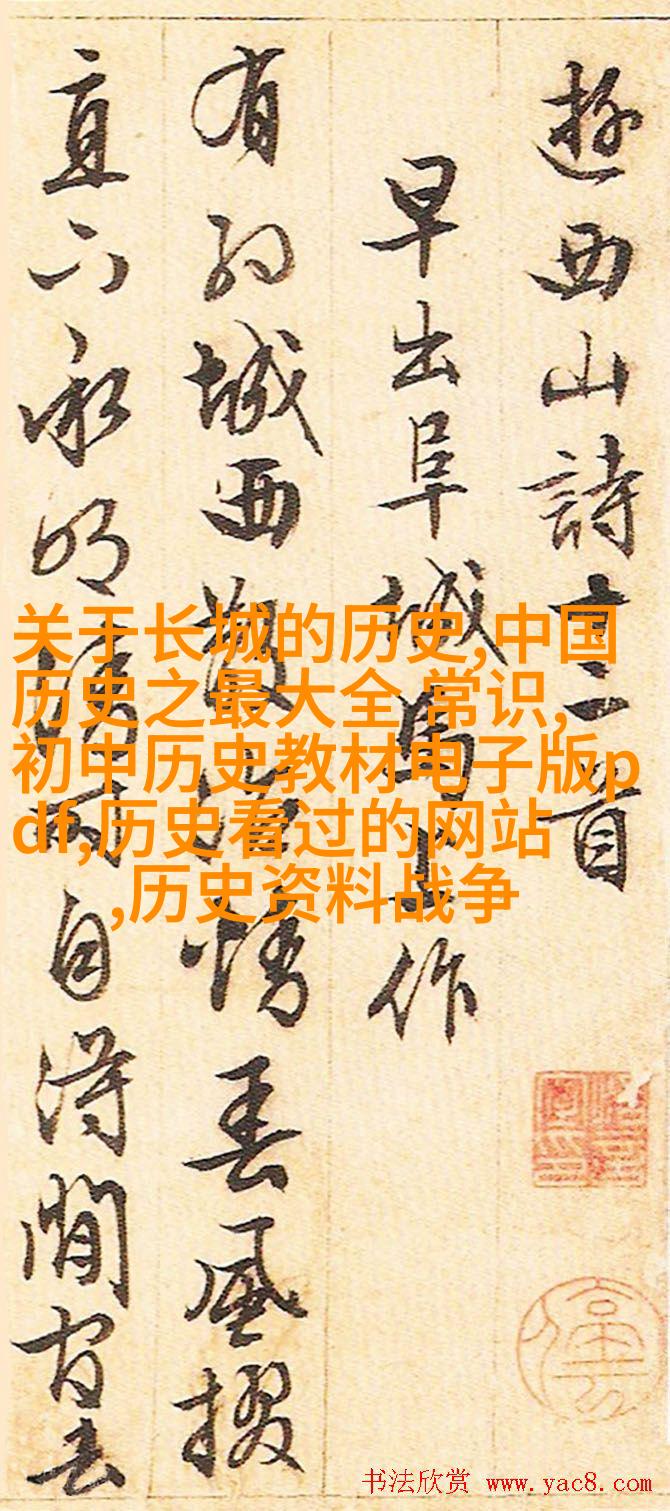 遊西山詩十二首
早出阜城馬上作
有約城西散冗情春風掇
直下承明清時自得閒官去
关于长城的历史,中国
历史之最大全 常识,
初中历史教材电子版p
df,历史看过的网站
,历史资料战争
书法欣赏 www.yac8.com